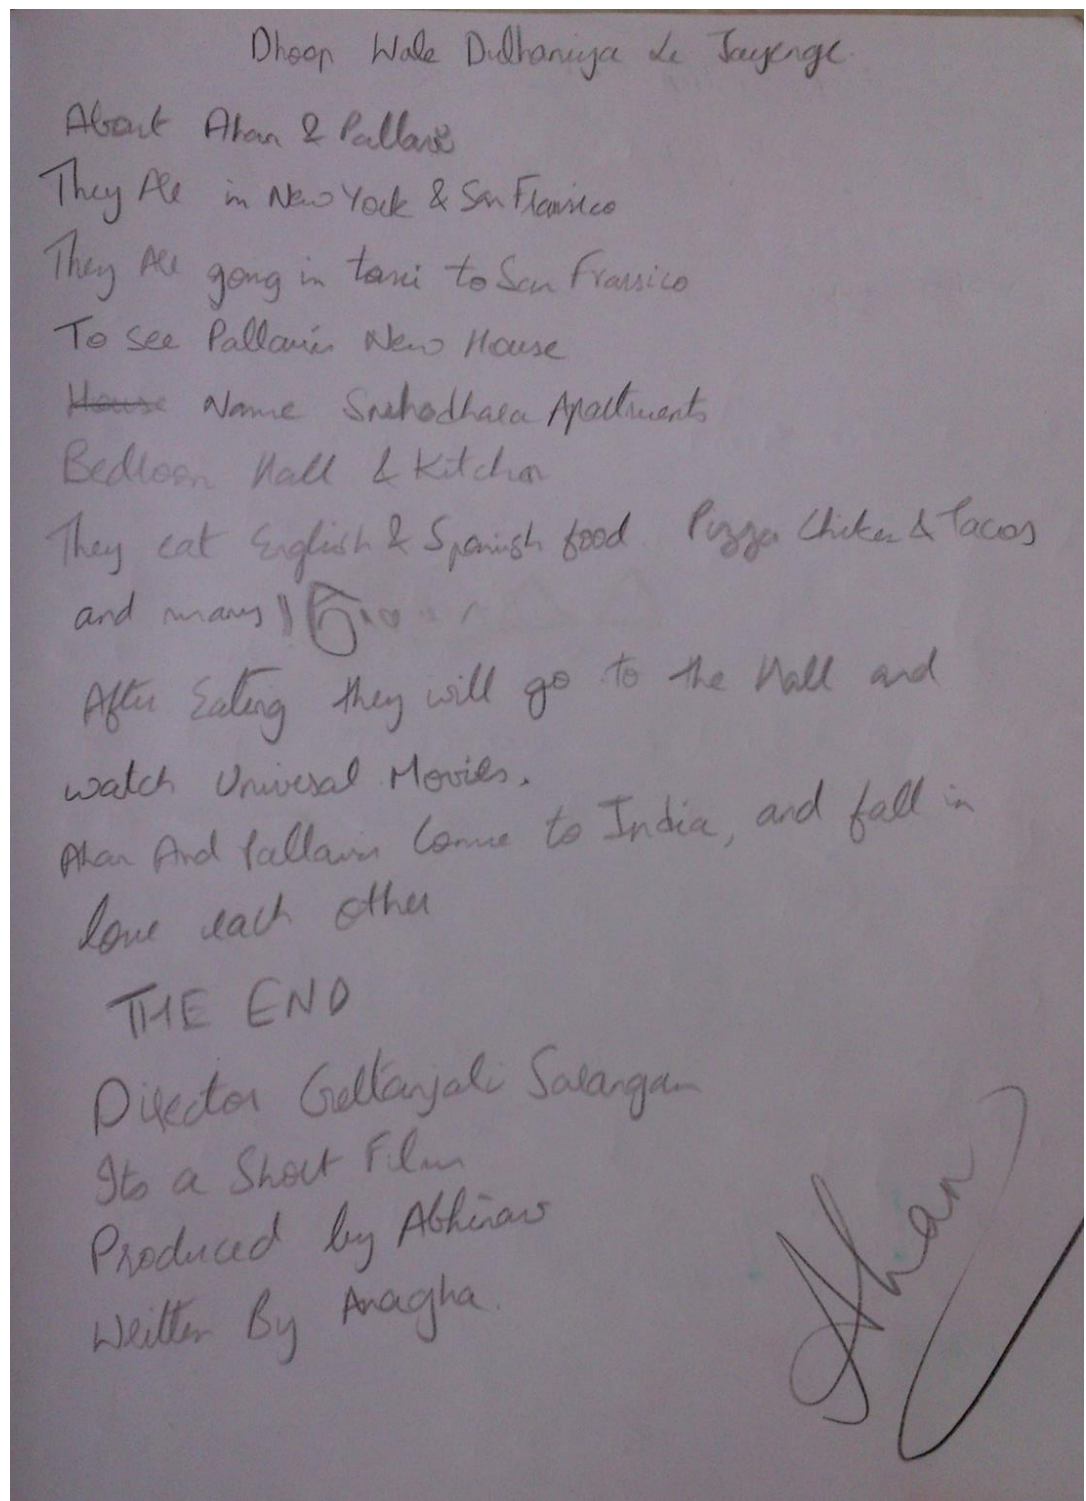 Dhoop Wale Dulhaniya Le Jayenge.
About Ahan & Pallavi
They Are in New York & San Fransico
They Are going in taxi to San Franssico
To see Pallavis New House
House Name Snehadhara Apartments
Bedroom Hall & Kitchen
They eat English & Spanish food Pizza Chiken & Tacos
and many
After Eating they will go to the Hall and
watch Universal Movies.
Ahan And Pallavi Come to India, and fall in
love each other
THE END
Director Geetanjali Sarangan
Its a Short Film
Produced by Abhinav
Written By Anagha.
Ahan